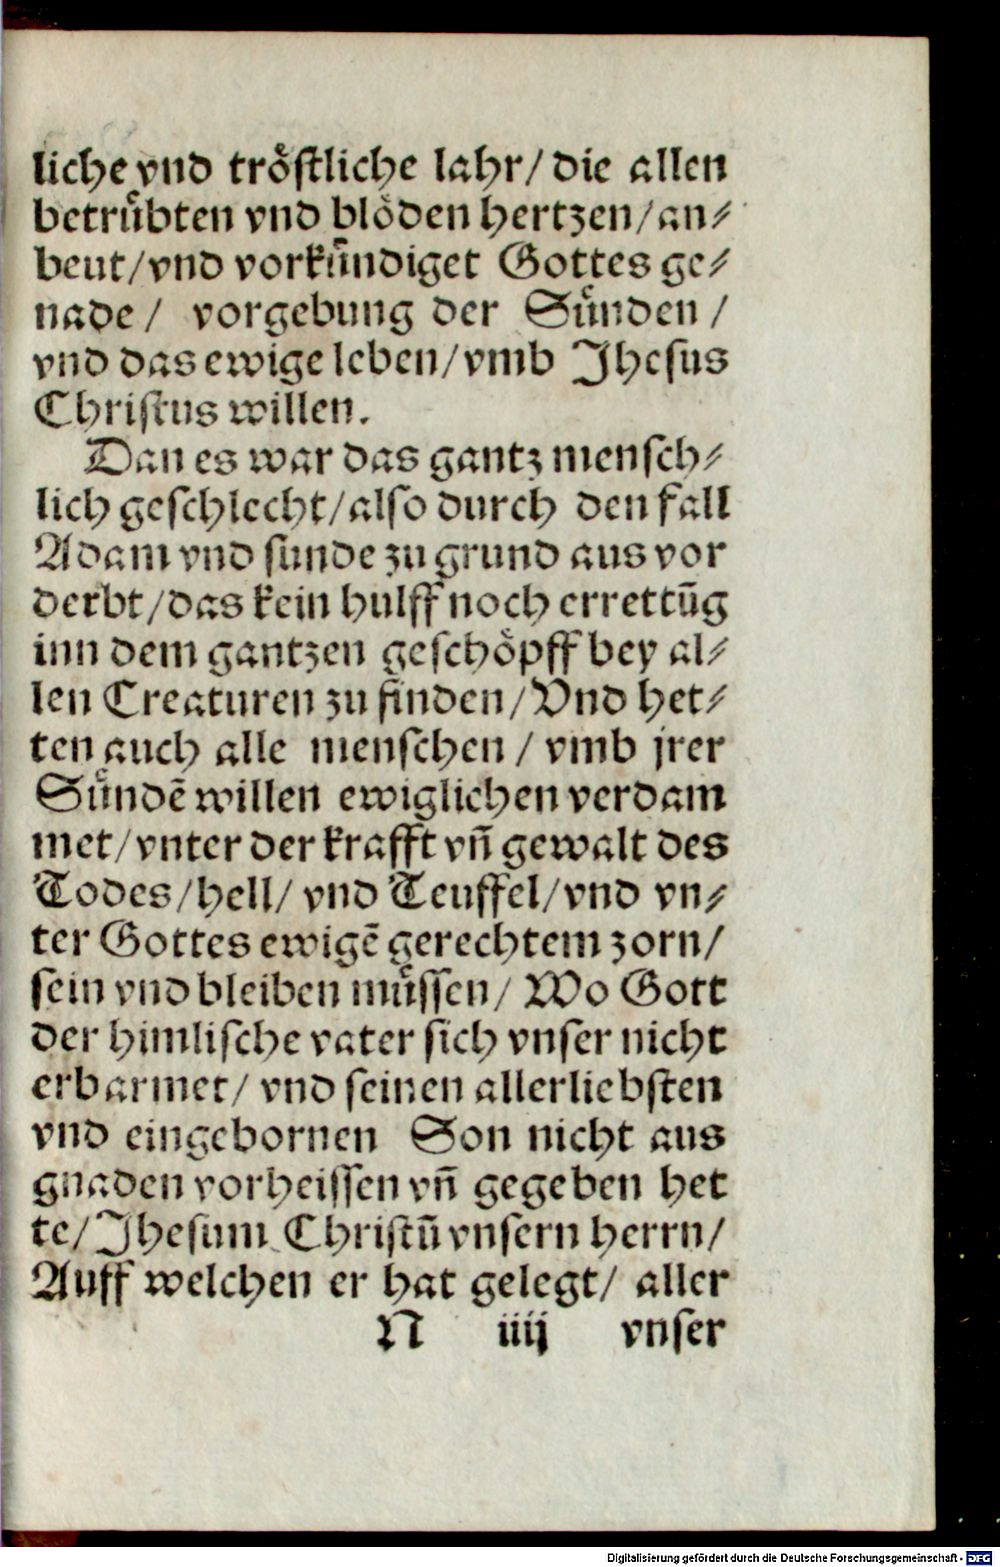 liche vnd troͤstliche lahr/ die allen
betruͤbten vnd bloͤden hertzen/ an⸗
beut/ vnd vorkuͤndiget Gottes ge⸗
nade/ vorgebung der Suͤnden/
vnd das ewige leben/ vmb Jhesus
Christus willen.
Dan es war das gantz mensch⸗
lich geschlecht/ also durch den fall
Adam vnd sunde zu grund aus vor
derbt/ das kein hulff noch errettūg
inn dem gantzen geschoͤpff bey al⸗
len Creaturen zu finden/ Vnd het⸗
ten auch alle menschen/ vmb jrer
Suͤndē willen ewiglichen verdam
met/ vnter der krafft vñ gewalt des
Todes/ hell/ vnd Teuffel/ vnd vn⸗
ter Gottes ewigē gerechtem zorn/
sein vnd bleiben muͤssen/ Wo Gott
der himlische vater sich vnser nicht
erbarmet/ vnd seinen allerliebsten
vnd eingebornen Son nicht aus
gnaden vorheissen vñ gegeben het
te/ Jhesum Christū vnsern herrn/
Auff welchen er hat gelegt/ aller
N iiij vnser
Digitalisierung gefördert durch die Deutsche Forschungsgemeinschaft - DFG